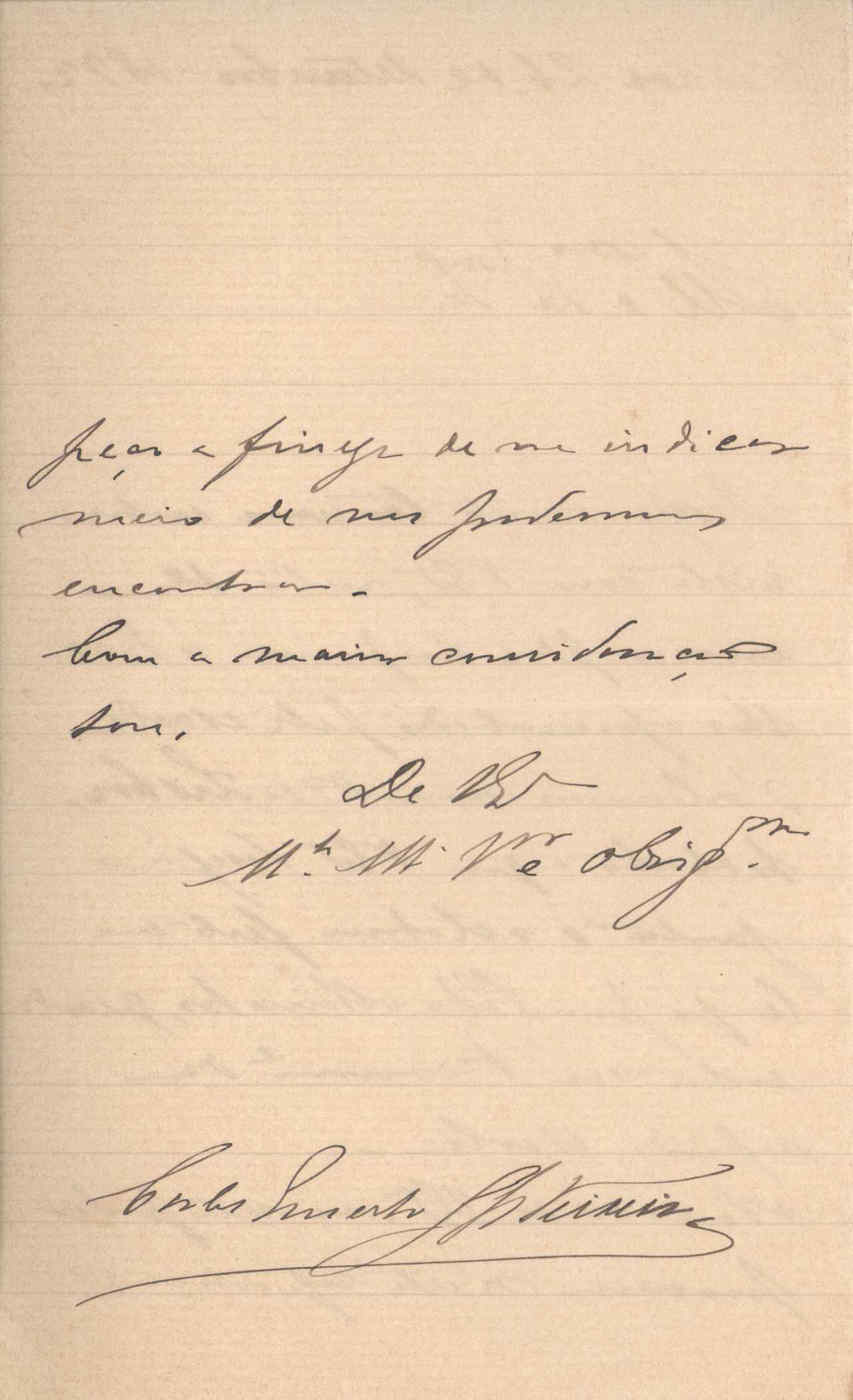 peço a fineza de me indicar
meio de nos podermos
encontrar.
Com a maior consideração
sou,
De V. Ex.ª
M.to At.º V.or e obrig.mo
Carlos Ernesto Teixeira